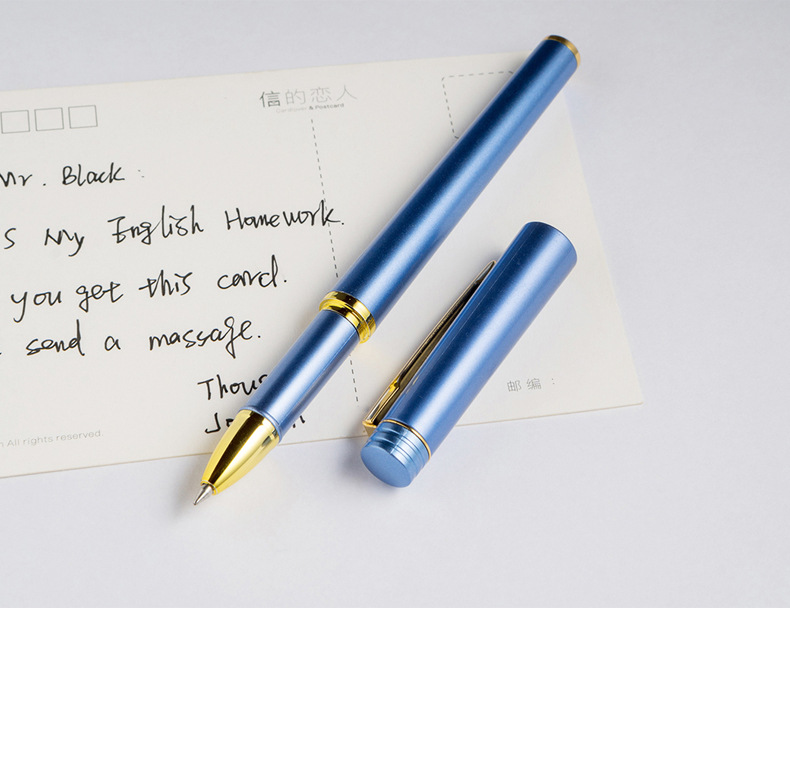 信的恋人
& Postcard
Mr. Black :
s My English Homework.
you get this card.
send a massage.
All rights reserved.
邮编：